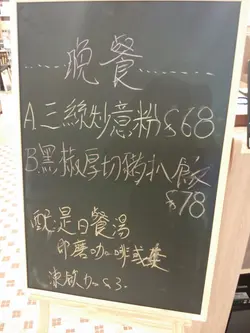 晚餐
A.三絲炒意粉$68
B.黑椒厚切豬扒飯
$78
配是日餐湯
即磨咖啡或茶
凍飲加$3.